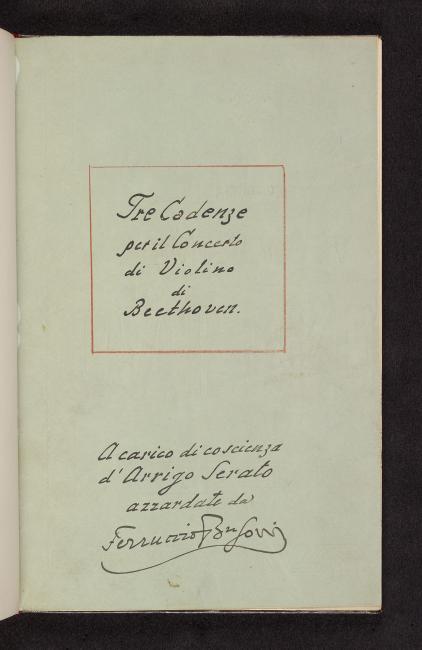 Tre Cadenze
per il Concerto
di Violino
di
Beethoven.
A carico di coscienza
d'Arrigo Serato
azzardate da
Ferruccio Busoni